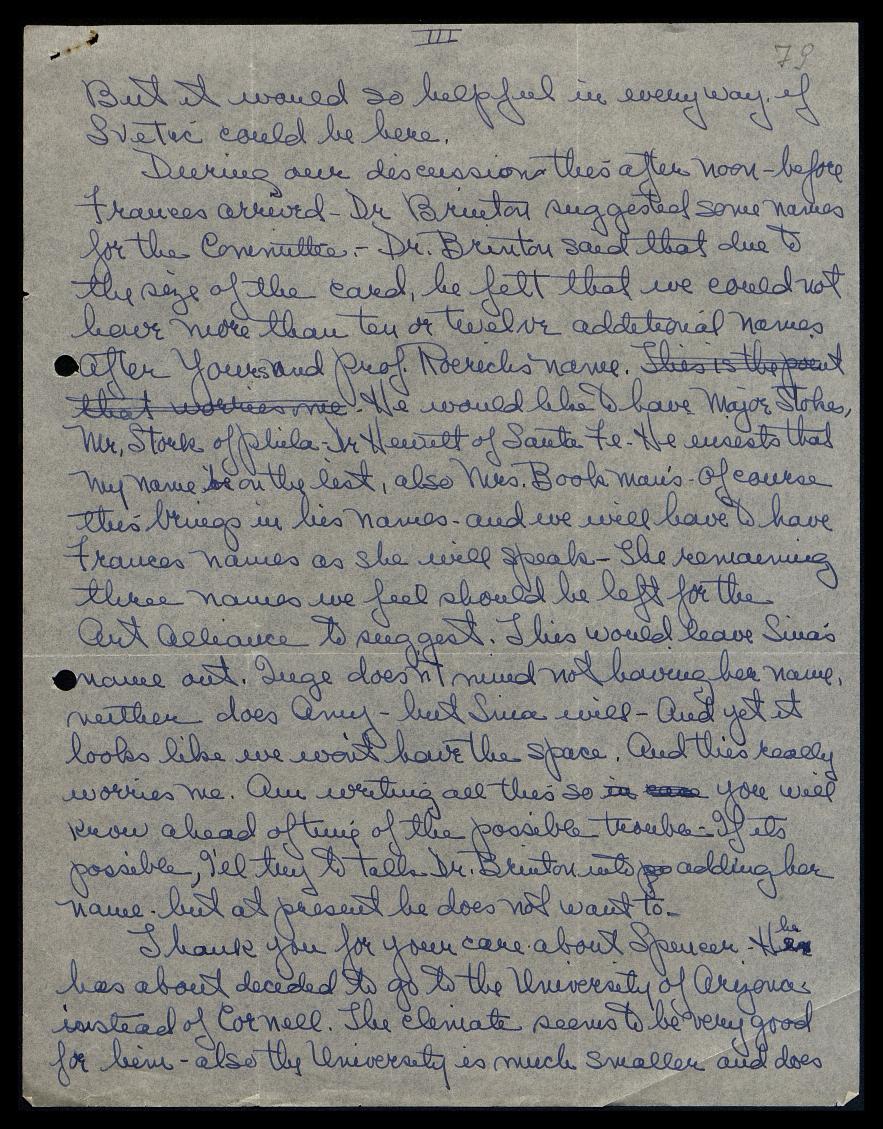 III
79
But it would so helpful in every way, if
Svetic could be here.
During our discussion this after noon - before
Frances arrived - Dr Brinton suggested some names
for the Committee. - Dr. Brinton said that due to
the size of the card, he felt that we could not
have more than ten or twelve additional names
after Yours and Prof. Roerich's name. This is the point
that worries me. He would like to have Major Stokes,
Mr. Stork of phila - Dr Hewett of Santa Fe. He insists that
my name be on the list, also Mrs. Bookman's - Of course
this brings in his names - and we will have to have
Frances names as she will speak - The remaining
three names we feel should be left for the
Art Alliance to suggest. This would leave Sina's
name out. Inge doesn't mind not having her name,
neither does Amy - but Sina will - And yet it
looks like we won't have the space. And this really
worries me. Am writing all this so in case you will
know ahead of time of the possible trouble - If its
possible, I'll try to talk Dr. Brinton into adding her
name. but at present he does not want to -
Thank you for your care about Spencer - he
has about decided to go to the University of Arizona
instead of Cornell. The climate seems to be very good
for him - also the University is much smaller and does